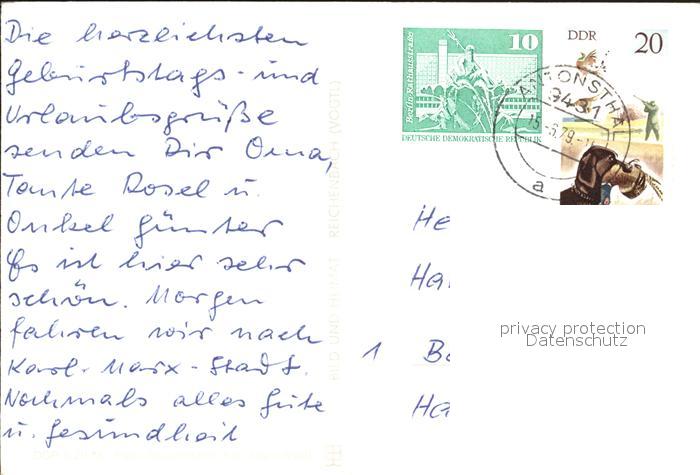 Die herzlichsten
Geburtstags- und
Urlaubsgrüße
senden Dir Oma,
Tante Rosel u.
Onkel Günter
Es ist hier sehr
schön. Morgen
fahren wir nach
Karl-Marx-Stadt.
Nochmals alles Gute
u. Gesundheit
BILD UND HEIMAT REICHENBACH (VOGTL)
Berlin, Rathausstraße
10
DEUTSCHE DEMOKRATISCHE REPUBLIK
DDR 20
ANTONSTHAL
9431
15.-6.79.-
a
He
Ha
1 Be
Ha
privacy protection
Datenschutz